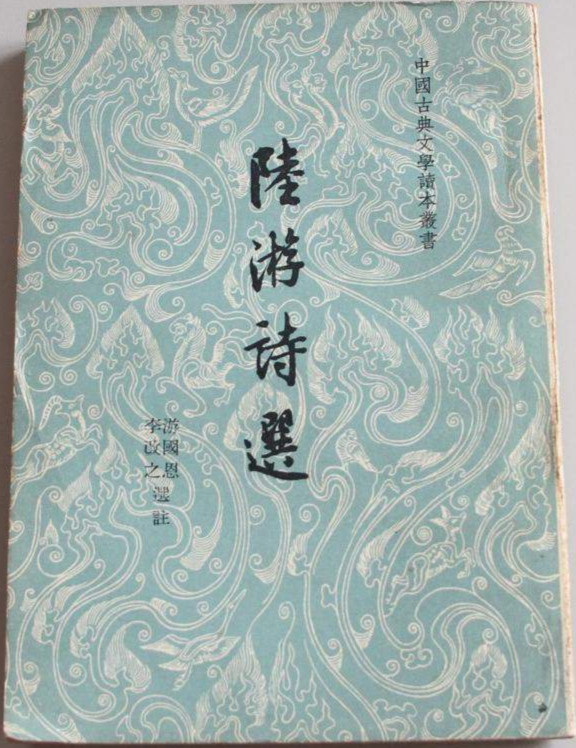 中國古典文學讀本叢書
陸游詩選
游國恩
李改之
選註